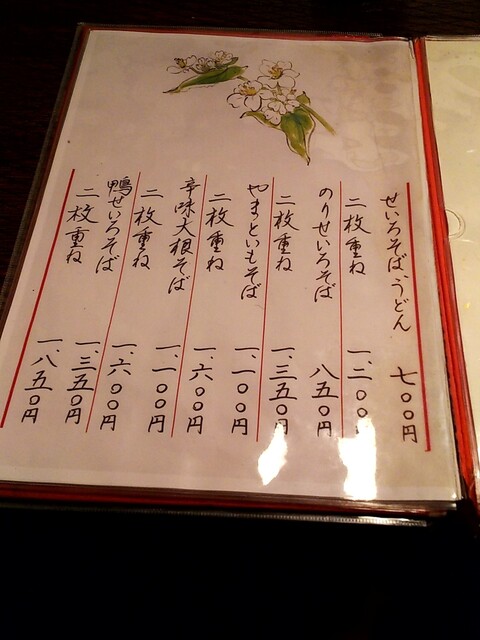 せいろそば、うどん 七〇〇円
二枚重ね 一、二〇〇円
のりせいろそば 八五〇円
二枚重ね 一、三五〇円
やまといもそば 一、一〇〇円
二枚重ね 一、六〇〇円
辛味大根そば 一、一〇〇円
二枚重ね 一、六〇〇円
鴨せいろそば 一、三五〇円
二枚重ね 一、八五〇円